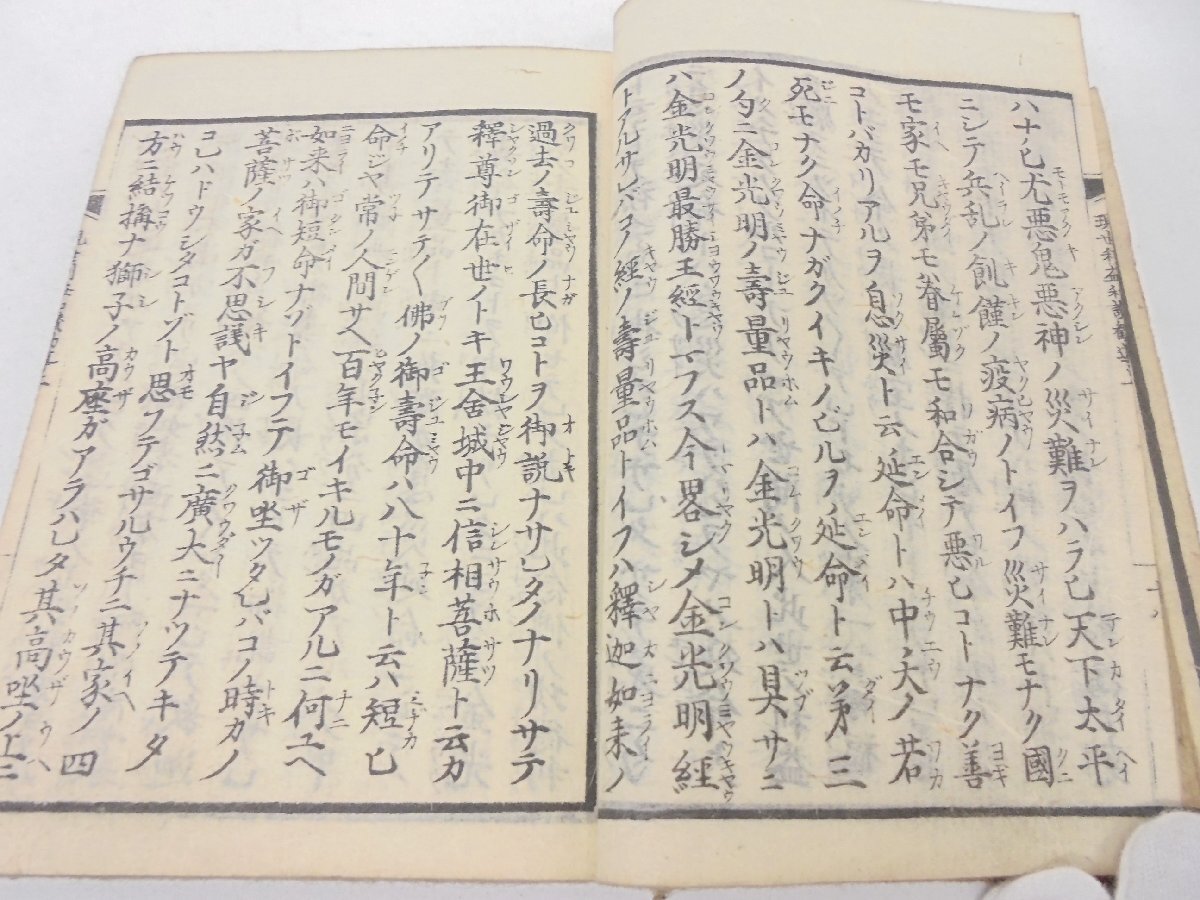 ハナヒ尤悪鬼悪神ノ災難ヲハラヒ天下太平
ニシテ兵乱ノ飢饉ノ疫病ノトイフ災難モナク國
モ家モ兄弟モ眷屬モ和合シテ悪ヒコトナク善
コトバカリアルヲ息災ト云延命トハ中々大ノ若
死モナク命ナガクイキノビルヲノ延命ト云第三
ノ勺ニ金光明ノ壽量品トハ金光明トハ具サニ
ハ金光明最勝王經トマフス今畧シメ金光明經
トアルサレバコノ經ノ壽量品トイフハ釋迦如来ノ
過去ノ壽命ノ長ヒコトヲ御説ナサレタノナリサテ
釋尊御在世ノトキ王舎城中ニ信相菩薩ト云カ
アリテサテ〱佛ノ御壽命ハ八十年ト云ハ短ヒ
命ジヤ常ノ人間サヘ百年モイキルモノガアルニ何ユヘ
如来ハ御短命ナゾトイフテ御坐ツタレバコノ時カノ
菩薩ノ家ガ不思議ヤ自然ニ廣大ニナツテキタ
コレハドウシタコトゾト思フテゴサルウチニ其家ノ四
方ニ結構ナ獅子ノ高座ガアラハレタ其高坐ノ上ニ